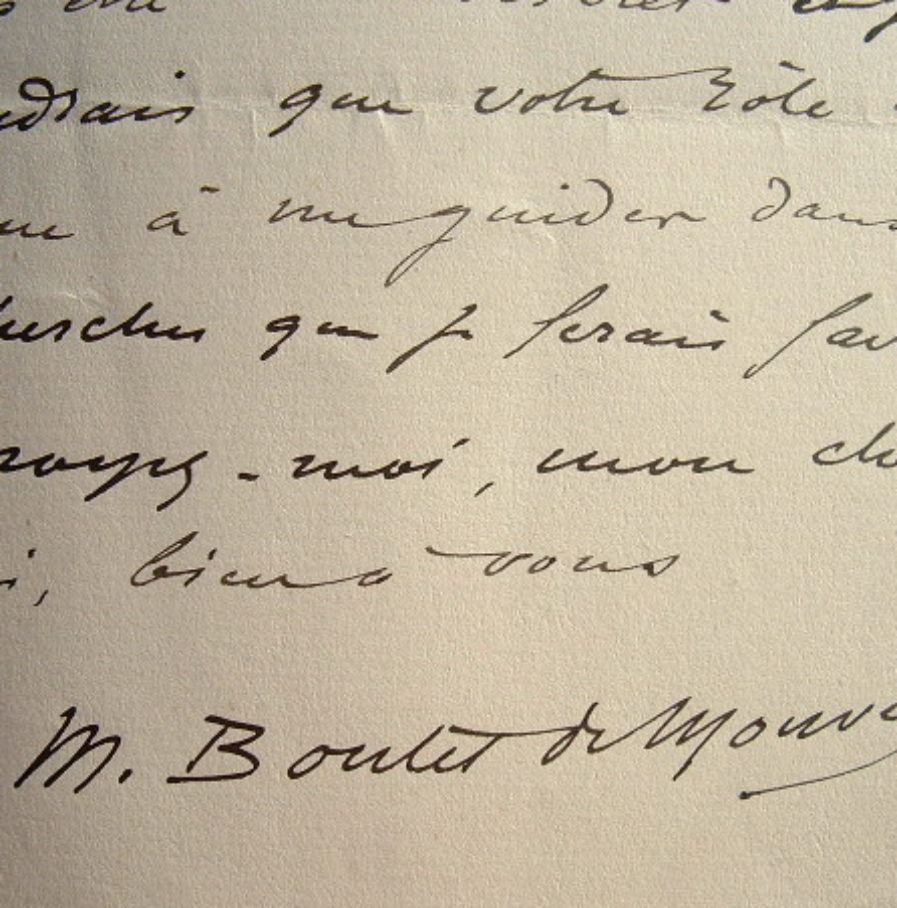 udrais que votre rôle
à me guider dans
herches que je ferais
royez-moi, mon che
i, bien à vous
M. Boutet de Monve